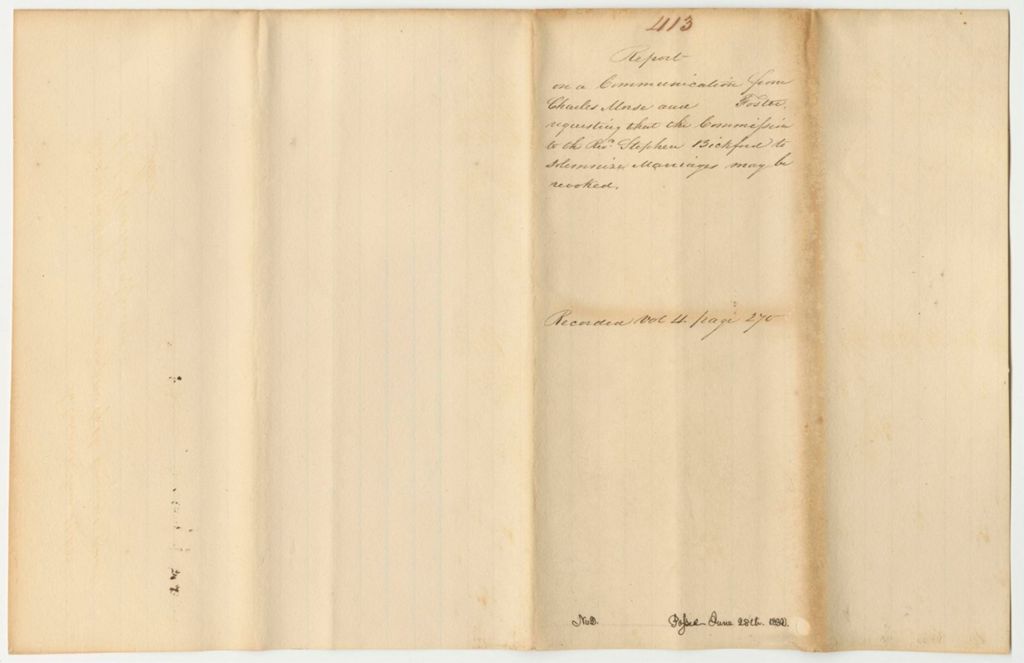 413
Report
on a Communication from
Charles Morse and Foster,
requesting that the Commission
to the Rev. Stephen Bickford to
solemnize Marriages may be
revoked.
Recorded Vol 4. page 270
June 28th.